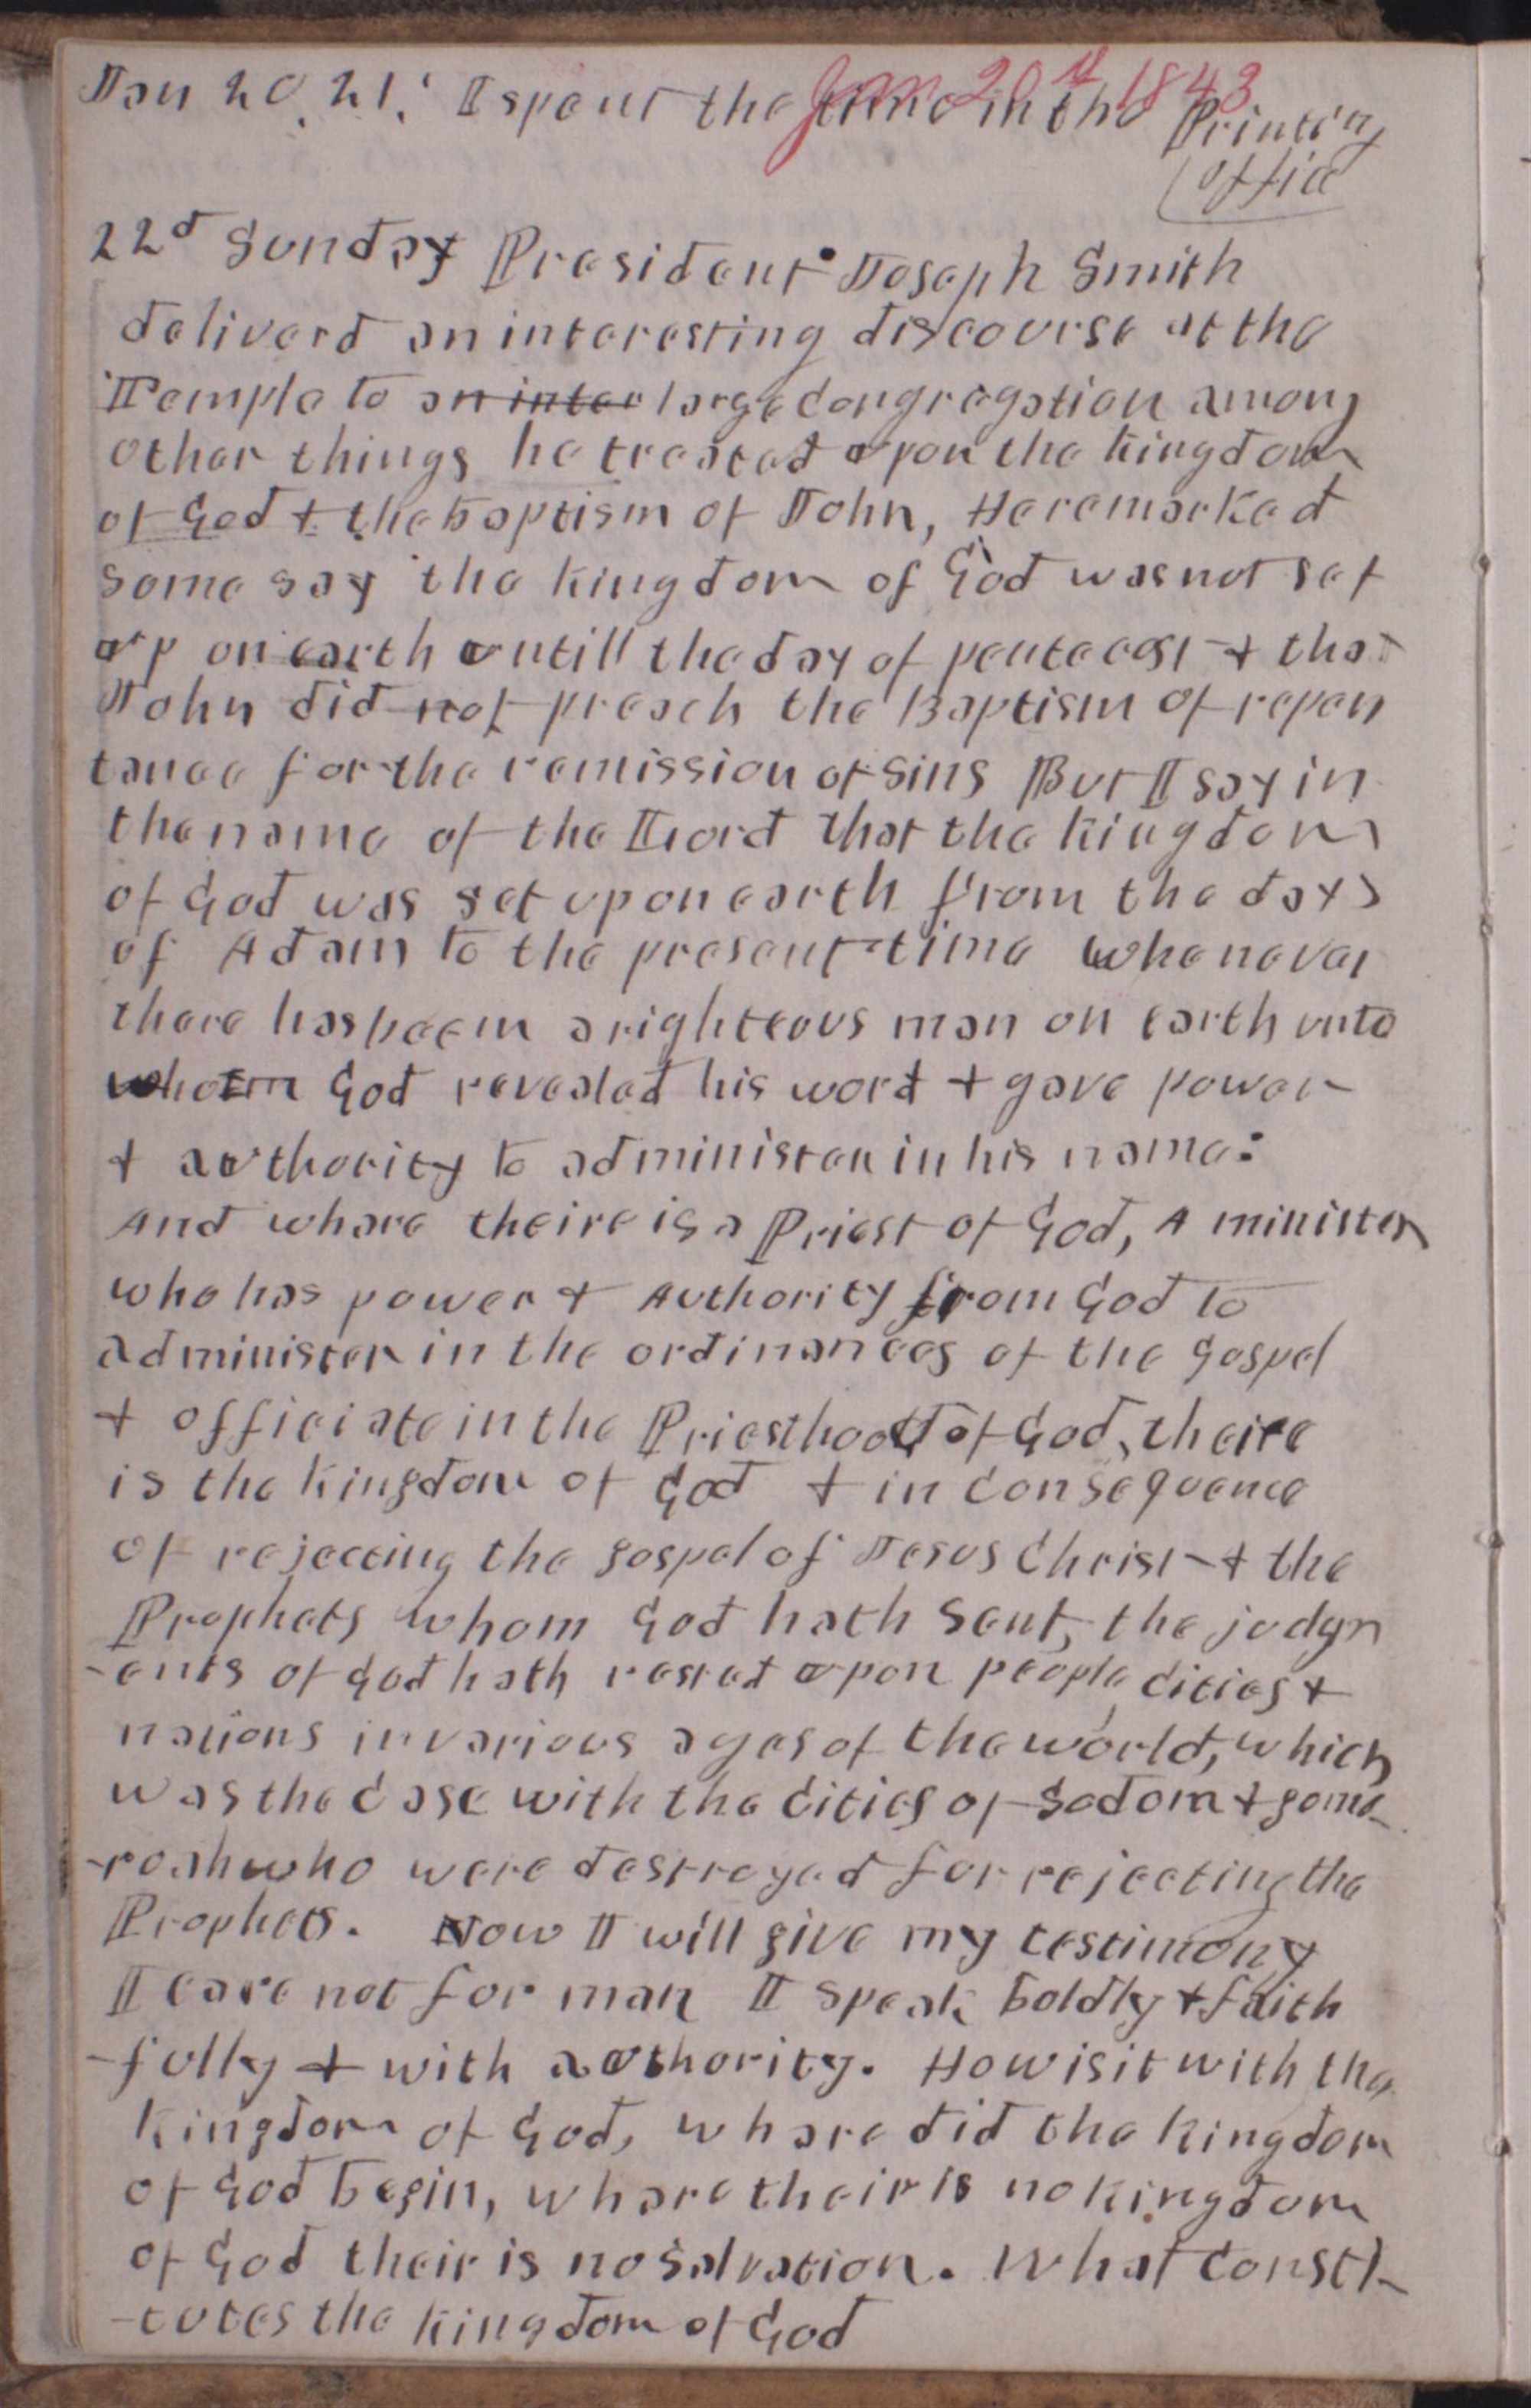 Jan 20th 1843
Jan 20, 21, I spent the time in the Printing
Office
22d Sunday President Joseph Smith
deliverd an interesting discourse at the
Temple to an inter large congregation among
other things he treated upon the kingdom
of God & the baptism of John, He remarked
some say the kingdom of God was not set
up on earth untill the day of pentecost & that
John did not preach the Baptism of repen
tance for the remission of sins But I say in
the name of the Lord that the kingdom
of God was set upon earth from the days
of Adam to the present time whenever
there has been a righteous man on earth unto
whom God revealed his word & gave power
& authority to administer in his name:
And whare theire is a Priest of God, A minister
who has power & Authority from God to
administer in the ordinances of the gospel
& officiate in the Priesthood of God, theire
is the kingdom of God & in consequence
of rejecting the gospel of Jesus Christ & the
Prophets whom God hath sent, the judgm
-ents of God hath rested upon people cities &
nations in various ages of the world, which
was the case with the cities of Sodom & gomo-
-roah who were destroyed for rejecting the
Prophets. Now I will give my testimony
I care not for man I speak boldly & faith
-fully & with authority. How is it with the
kingdom of God, whare did the kingdom
of God begin, whare their is no kingdom
of God their is no salvation. What consti-
-tutes the kingdom of God